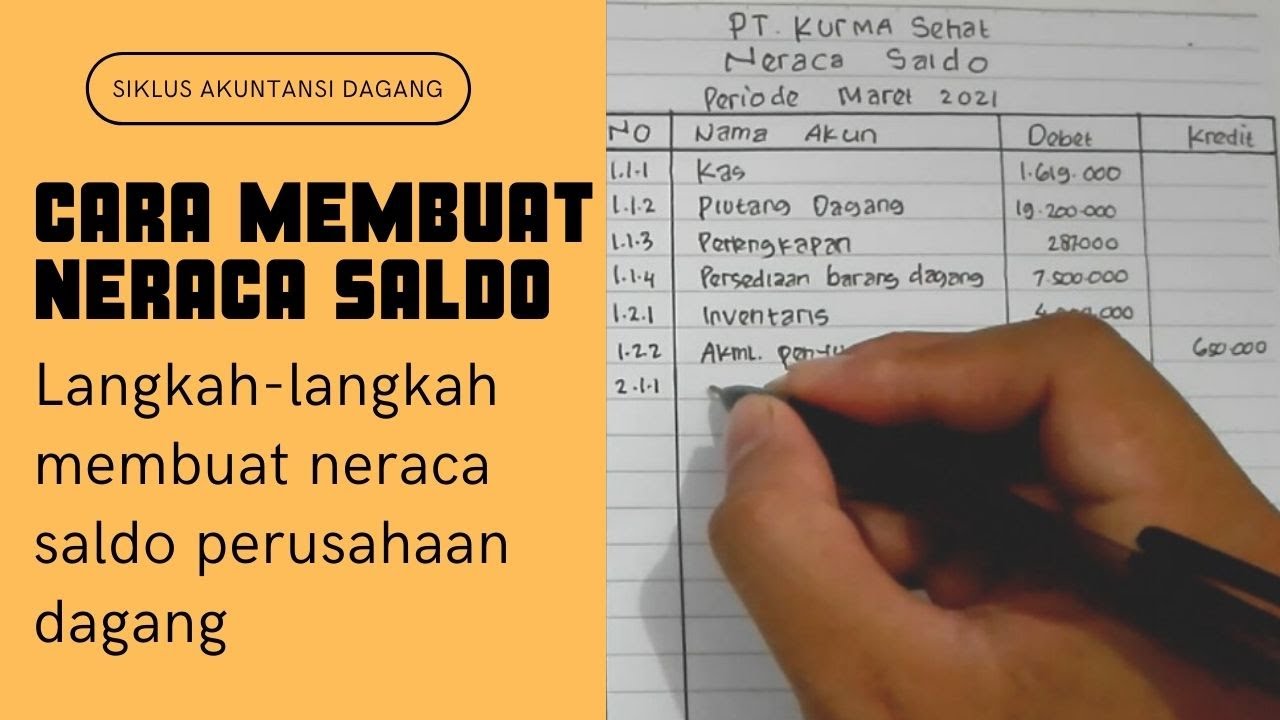 SIKLUS AKUNTANSI DAGANG
CARA MEMBUAT
NERACA SALDO
Langkah-langkah
membuat neraca
saldo perusahaan
dagang
PT. Kurma Sehat
Neraca Saldo
Periode Maret 2021
NO Nama Akun Debet Kredit
1.1.1 Kas 1.619.000
1.1.2 Piutang Dagang 19.200.000
1.1.3 Perlengkapan 287.000
1.1.4 Persediaan barang dagang 7.500.000
1.2.1 Inventaris
1.2.2 Akml. 650.000
2.1.1